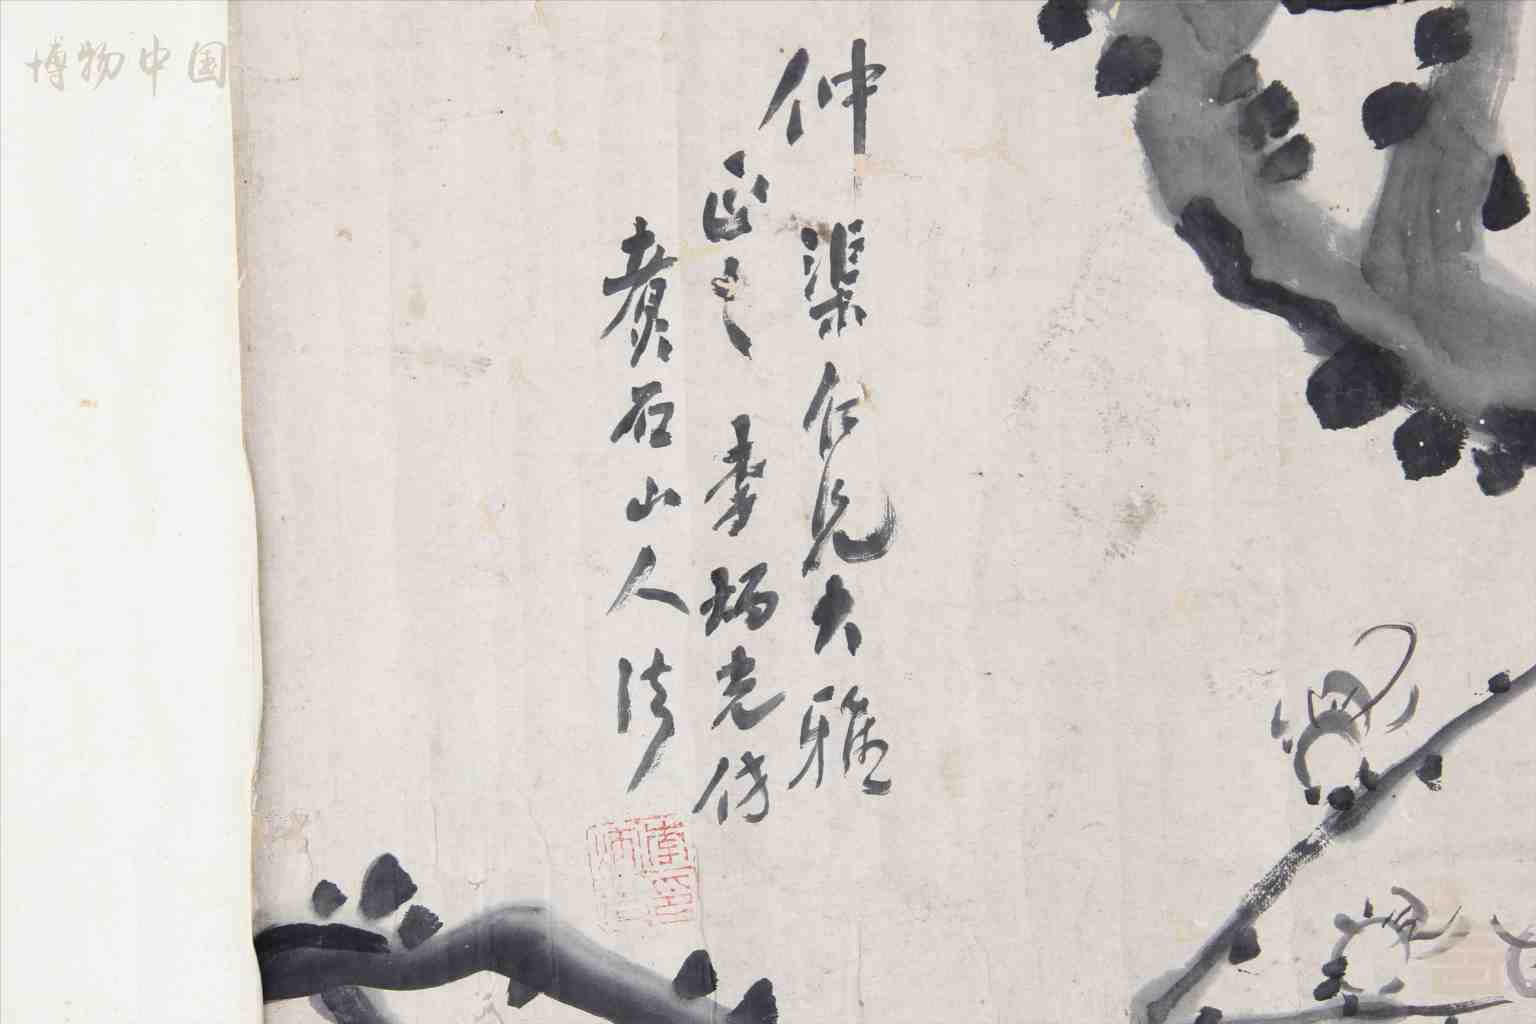 博物中国
仲渠仁兄大雅
正之 李炳光仿
石山人法